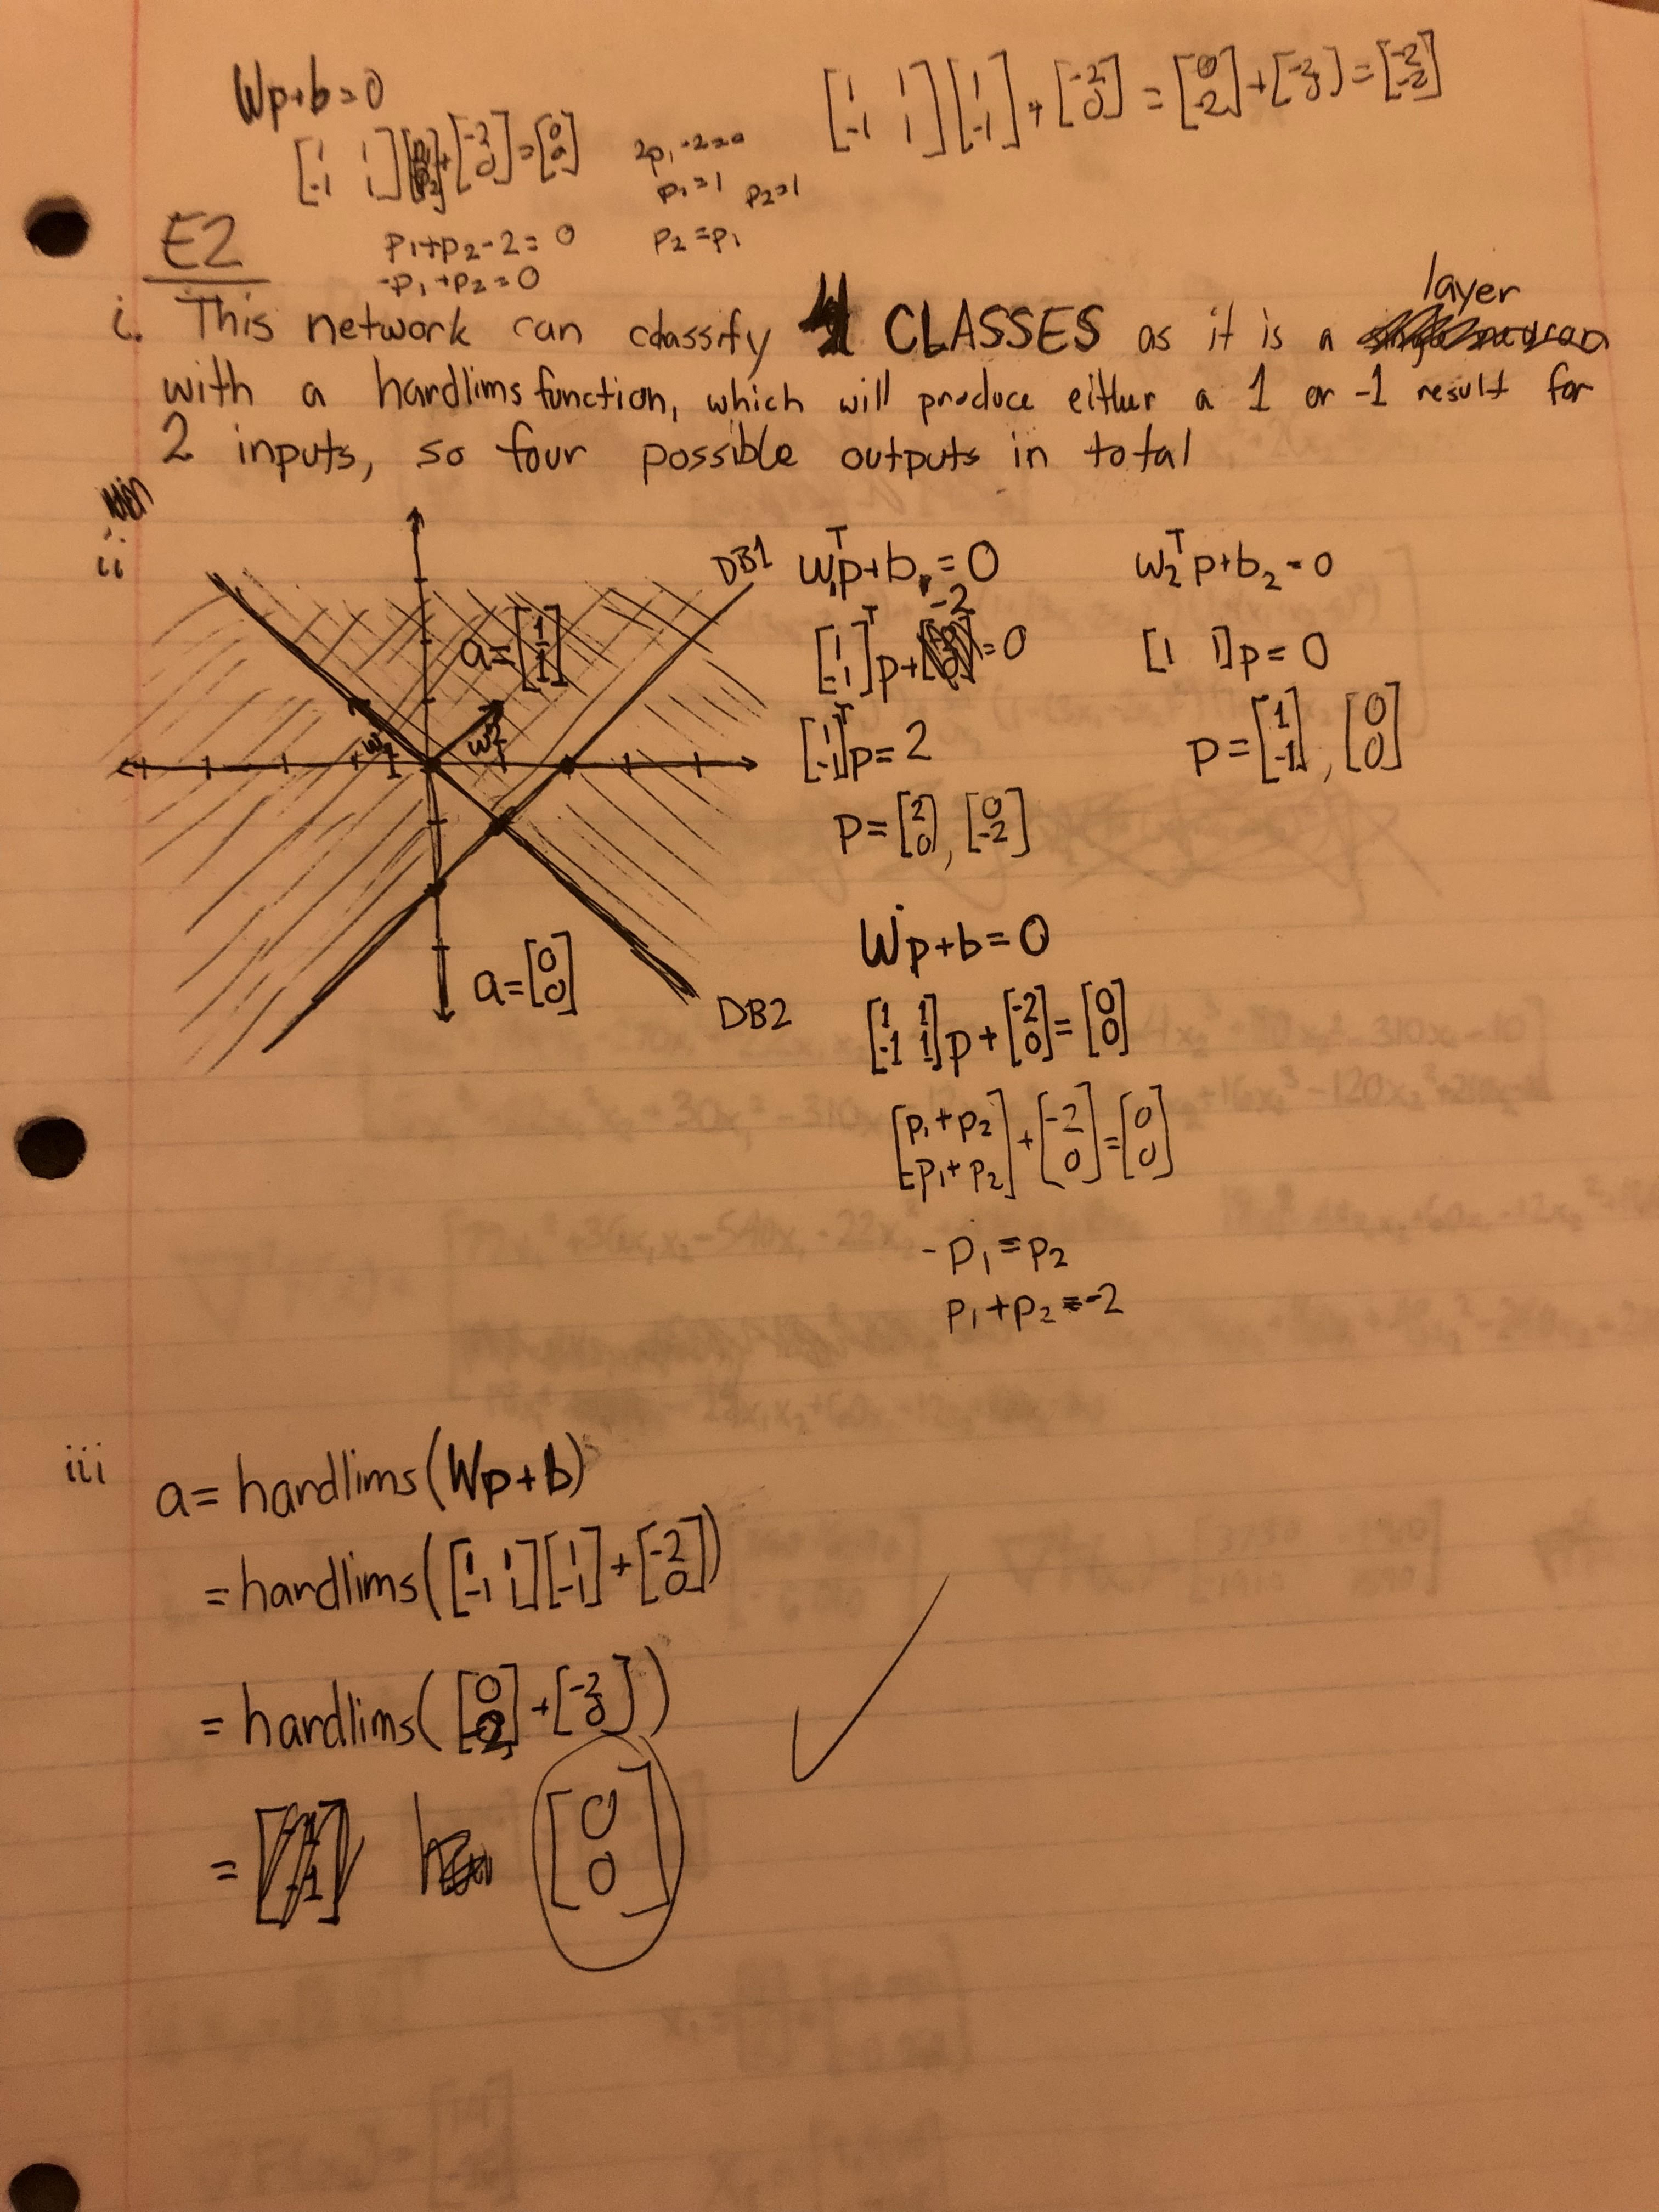 Wp+b=0
[1 1; -1 1][p1; p2]+[-2; 0]=[0; 0]
p1+p2-2=0
-p1+p2=0
2p1-2=0
p1=1 p2=1
p2=p1
[1 1; -1 1][1; -1]+[-2; 0]=[0; -2]+[-2; 0]=[-2; -2]
E2
i. This network can classify 4 CLASSES as it is a layer
with a hardlims function, which will produce either a 1 or -1 result for
2 inputs, so four possible outputs in total
ii
DB1
a=[1; 1]
a=[0; 0]
DB2
w1ᵀp+b1=0
[1; -1]ᵀp+-2=0
[1; -1]ᵀp=2
p=[2; 0], [0; -2]
w2ᵀp+b2=0
[1 1]p=0
p=[1; -1], [0; 0]
Wp+b=0
[1 1; -1 1]p+[-2; 0]=[0; 0]
[p1+p2; -p1+p2]+[-2; 0]=[0; 0]
-p1=p2
p1+p2=-2
iii
a=hardlims(Wp+b)
=hardlims([1 1; -1 1][1; -1]+[-2; 0])
=hardlims([0; -2]+[-2; 0])
= [0; 0]